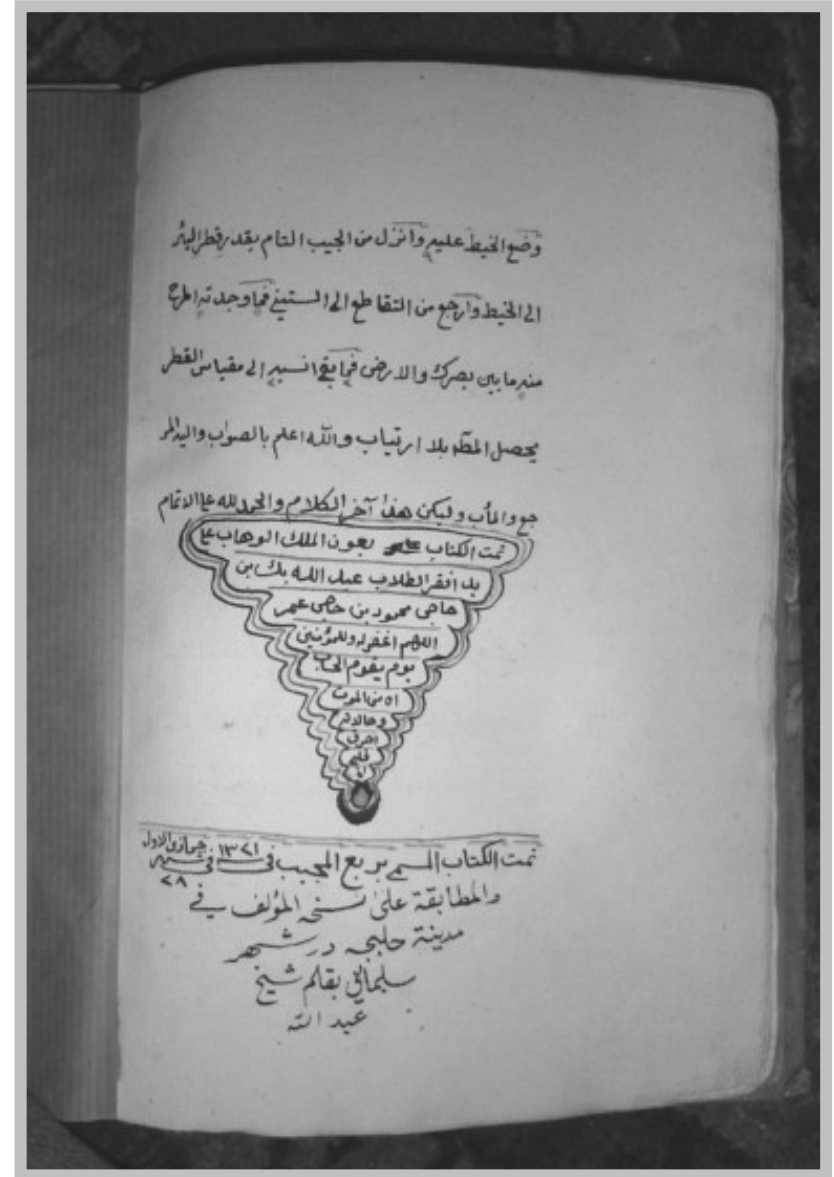 وضع الخيط عليه وانزل من الجيب التام بقدر قطر البئر
الى الخيط وارجع من التقاطع الى الستيني فما وجدته اطرح
منه ما بين بصرك والارض فما بقى انسبه الى مقياس القطر
يحصل المط بلا ارتياب والله اعلم بالصواب واليه المر
جع والمأب وليكن هذا آخر الكلام والحمد لله على الاتمام
تمت الكتاب بعون الملك الوهاب على
يد افقر الطلاب عبد الله بك بن
حاجى محمود بن حاجى عمر
اللهم اغفر له وللمؤمنين
يوم يقوم الحساب
اه من الموت
وحالاته
احرق
قلبى
تمت الكتاب المسمى بربع المجيب فى ١٣٢١ فى شهر جمادى الاول ٢٨
والمطابقة على نسخه المؤلف في
مدينة حلبجه در شهر
سليماني بقلم شيخ
عبد الله